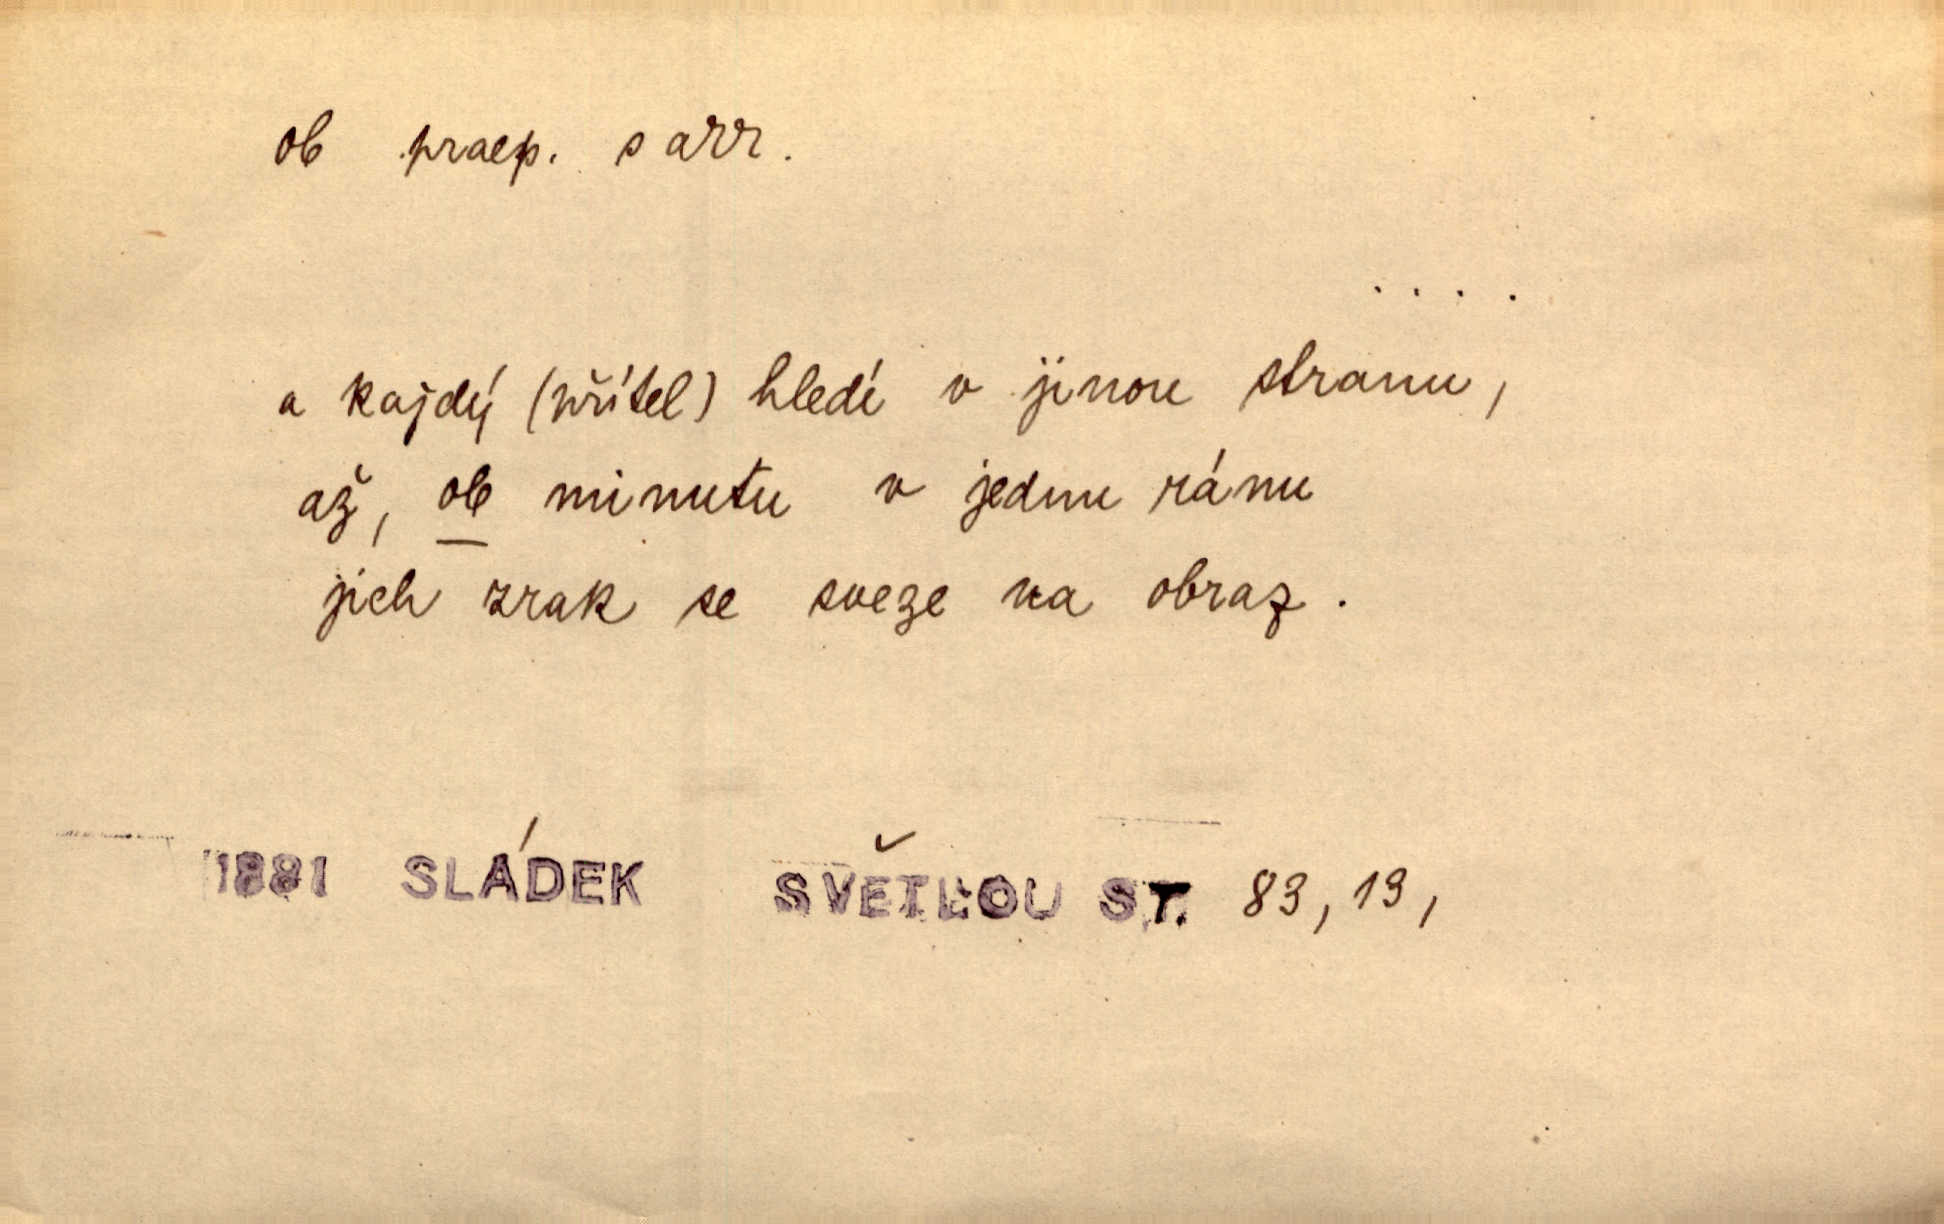 ob praep. s akk.
. . . .
a každý (přítel) hledí v jinou stranu,
až, ob minutu v jednu ránu
jich zrak se sveze na obraz.
1881 SLÁDEK SVĚTLOU ST. 83, 19,